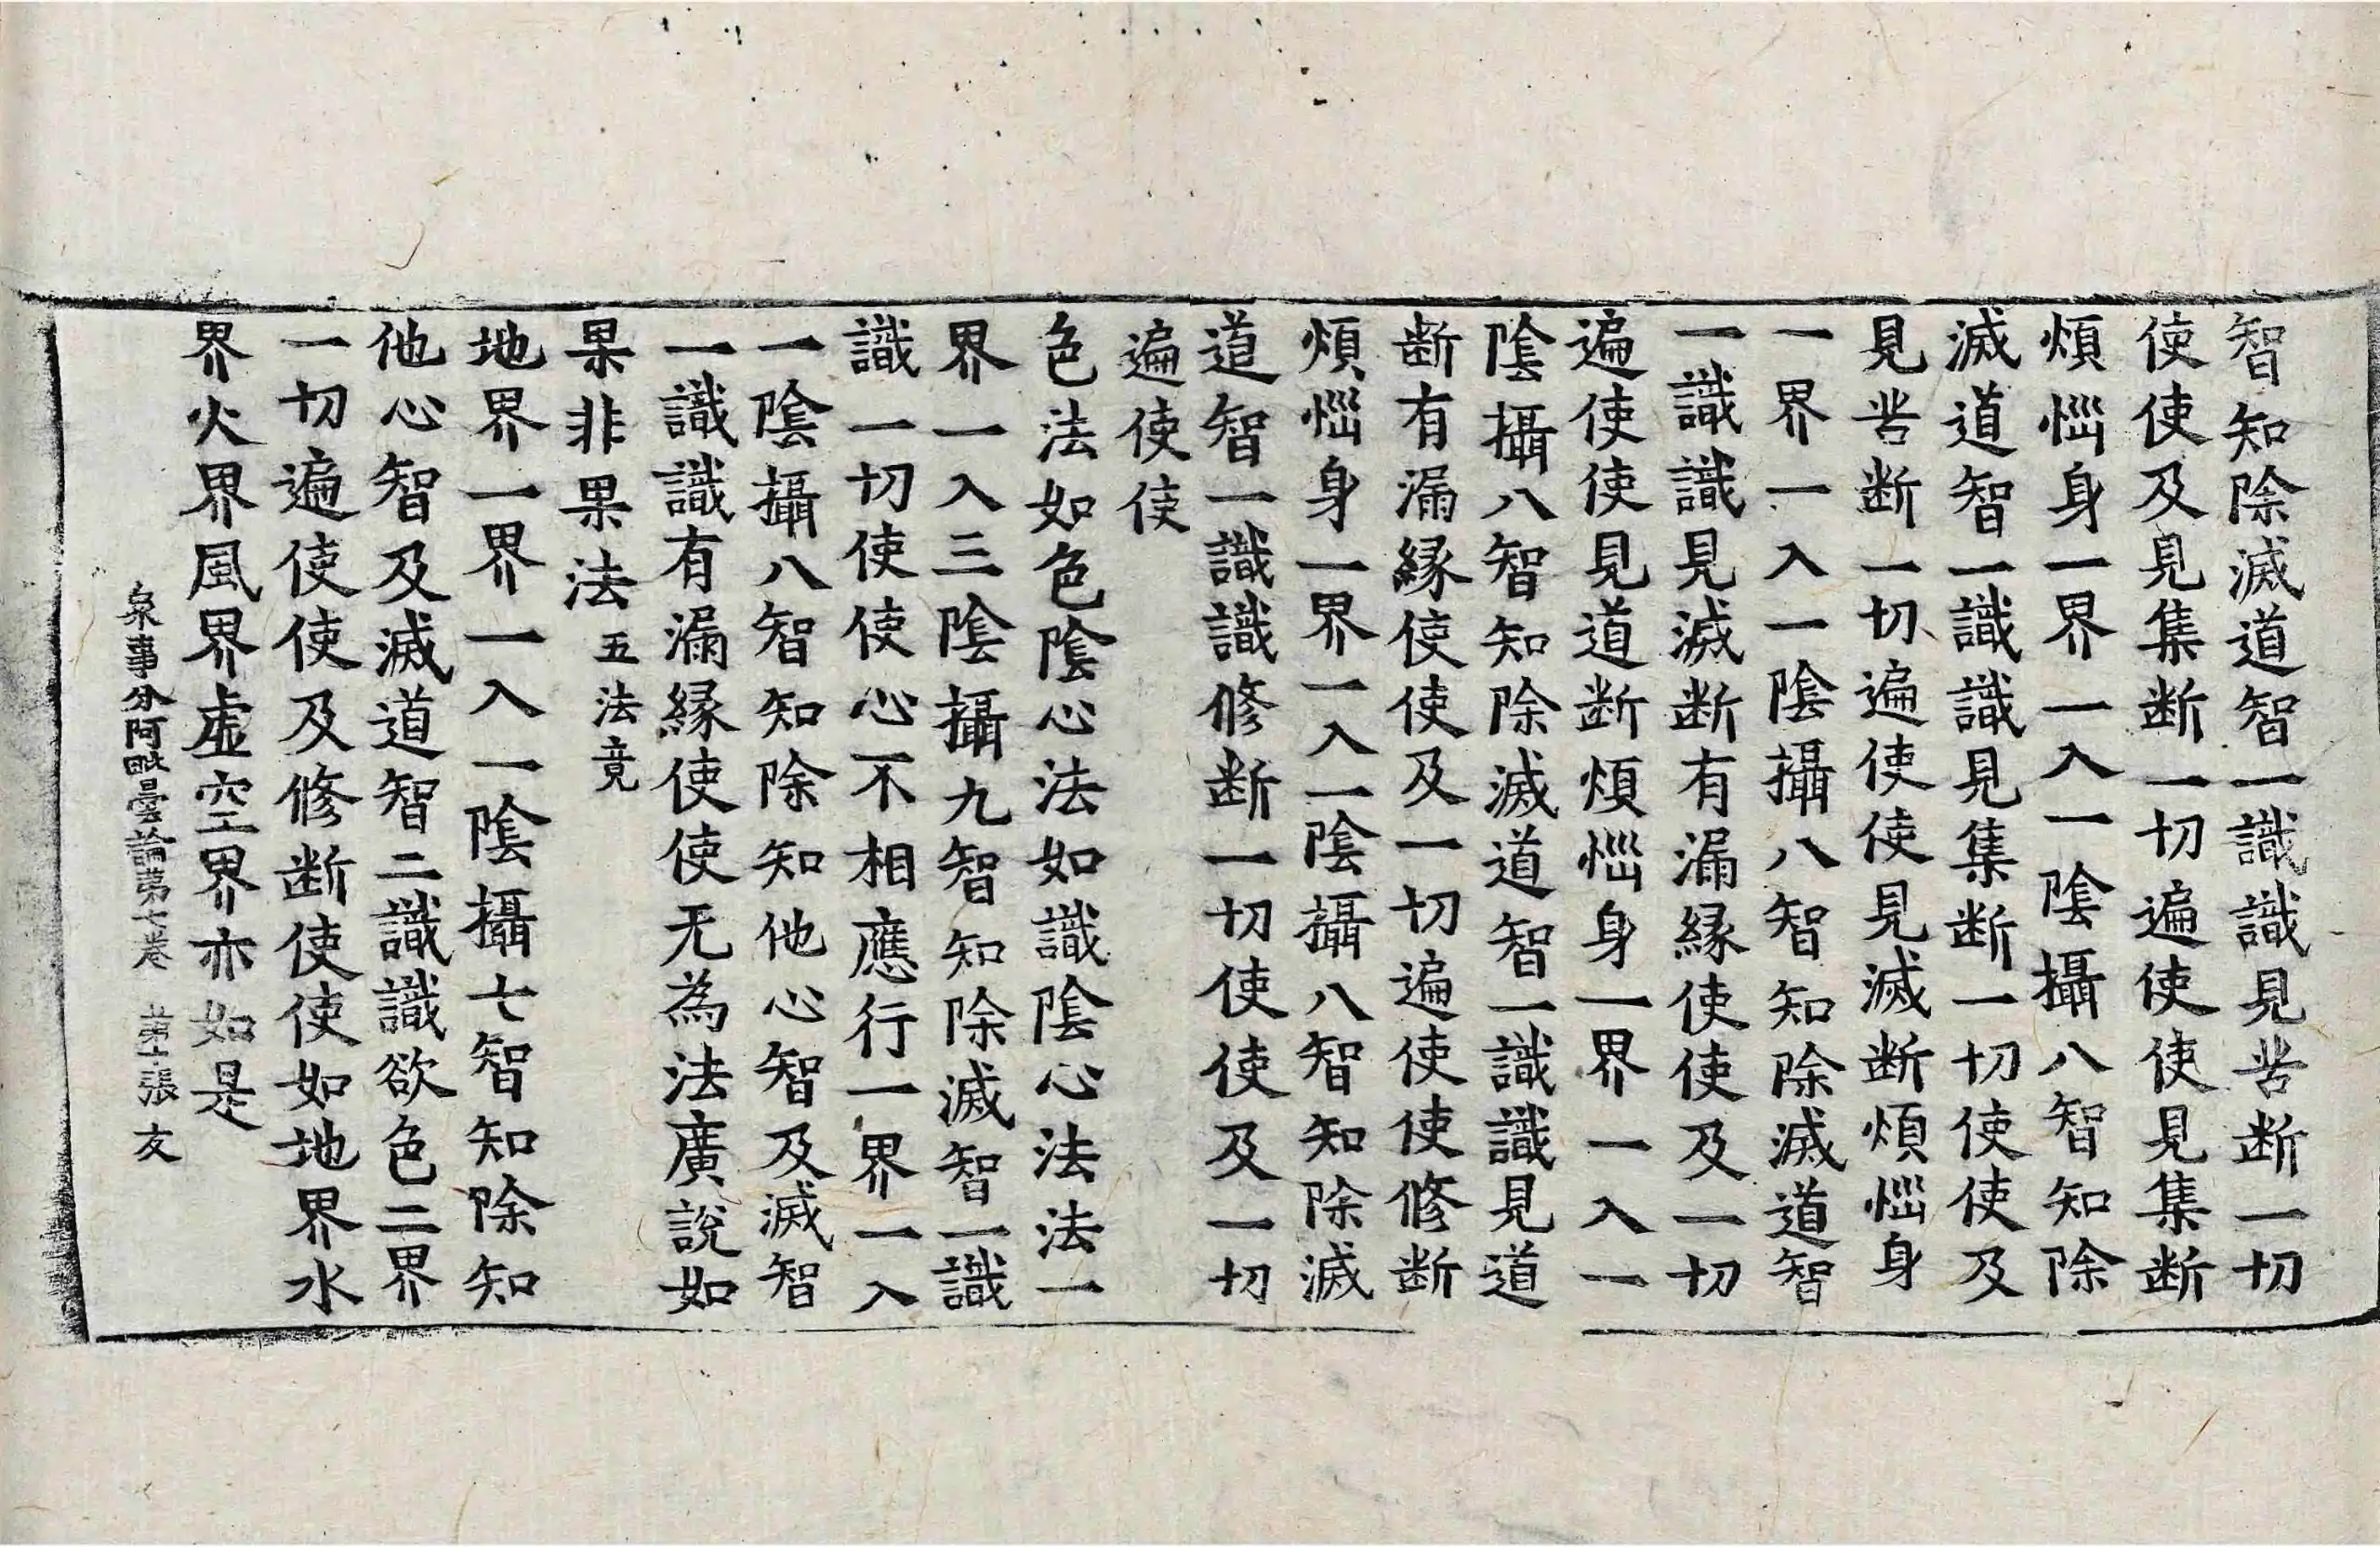 智知除滅道智一識識見苦断一切
使使及見集断一切遍使使見集断
煩惱身一界一入一陰攝八智知除
滅道智一識識見集断一切使使及
見苦断一切遍使使見滅断煩惱身
一界一入一陰攝八智知除滅道智
一識識見滅断有漏縁使使及一切
遍使使見道断煩惱身一界一入一
陰攝八智知除滅道智一識識見道
断有漏縁使使及一切遍使使修断
煩惱身一界一入一陰攝八智知除滅
道智一識識修断一切使使及一切
遍使使
色法如色陰心法如識陰心法法一
界一入三陰攝九智知除滅智一識
識一切使使心不相應行一界一入
一陰攝八智知除知他心智及滅智
一識識有漏縁使使无為法廣說如
果非果法 五法竟
地界一界一入一陰攝七智知除知
他心智及滅道智二識識欲色二界
一切遍使使及修断使使如地界水
界火界風界虚空界亦如是
衆事分阿毗曇論苐七卷 苐十張 友